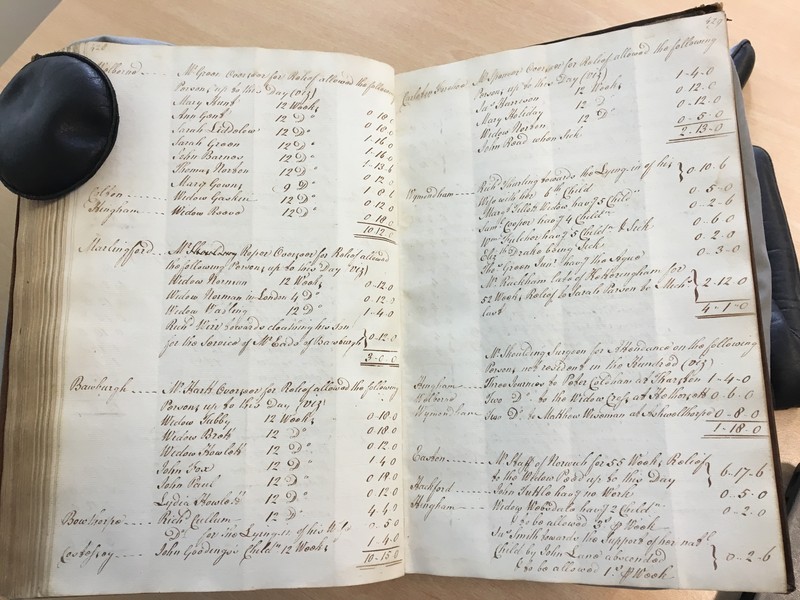 428
Welborne Mr Green Overseer for Relief allowed the following
Persons up to this Day (Viz)
Mary Hunt 12 Weeks 0 18 0
Ann Gont 12 Do 0 10 0
Sarah 12 Do 1-16 0
Sarah Green 12 Do 1-16 0
John Barnes 12 Do
Thomas Norton 12 Do 0 12 0
Mary Gowing 9 Do
Colton Widow Gaskin 12 Do 0 12 0
Hingham Widow 12 Do 0 18 0
10 12 0
Marlingford Mr Roper Overseer for Relief allowed
the following Persons up to this Day (Viz)
Widow Norman 12 Weeks 0-12 0
Widow Norman in London 4 Do 0 12 0
Widow 12 Do 1-4 0
Richd Wire towards cloathing his son
for his Service of Mr Eads of Bawburgh 0-12 0
3-0 0
Bawburgh Mr Hart Overseer for Relief allowed the following
Persons up to this Day (Viz)
Widow Tabby 12 Weeks 0-18 0
Widow 12 Do 0 18 0
Widow Howlett 12 Do 0 12 0
John Fox 12 Do 1 4 0
John Paul 12 Do 0 18 0
Lydia Howlett 12 Do 0 12 0
Bowthorpe Richd Cullum 12 Do 4-4 0
Do for the Lying in of his Wife 0-5 0
Costessey John Goodings Childn 12 Weeks 1-4 0
10-15 0
429
Carleton Forehoe Mr Overseer for Relief allowed the following
Persons up to this Day (Viz)
Jas Harrison 12 Weeks 1-4-0
Mary Holiday 12 D 0 12 0
Widow Norton 12 Do 0-12-0
John Road when Sick 0-5-0
2-13-0
Wymondham Richd towards the Lying in of his
Wife with her 8th Child 0-10-6
Mary Tillott Widow havg 5 Childn 0-5-0
Saml Cooper havg 4 Childn 0-2-6
Wm Fulcher havg 5 Childn & Sick 0-6 0
Elizth Drake being Sick 0-2-0
Thos Green Junr havg the Ague 0-3-0
Mr Buckham late of Hetheringham for
52 Weeks Relief to Sarah Parson to Michs
last 2-12-0
4-1-0
Mr Shoulding Surgeon for Attendance on the following
Persons not resident in the Hundred (Viz)
Hingham Three Journes to Peter Coldham at Tharston 1-4-0
Welborne Two Do to the Widow Cross at Hethersett 0-6 0
Wymondham Two Do to Matthew Wiseman at Ashwelthorpe 0-8-0
1-18-0
Easton Mr Staff of Norwich for 55 Weeks Relief
to the Widow up to this Day 6-17-6
Hackford John Tuttle havg no Work 0-5-0
Hingham Widow Woodale havg 2 Childn 0-2-0
to be allowed 2s P Week
Jas Smith towards the Support of her natl
Child by John Lane absconded 0-2-6
to be allowed 1s P Week